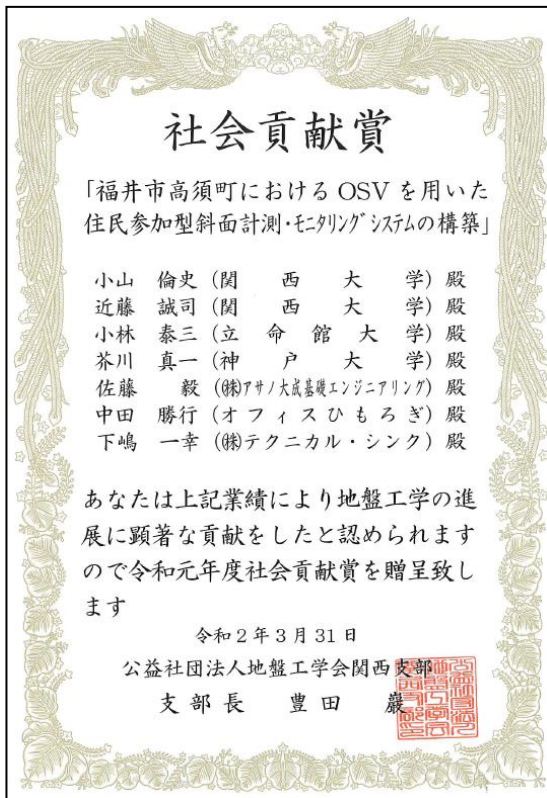 社会貢献賞
「福井市高須町におけるOSVを用いた
住民参加型斜面計測・モニタリングシステムの構築」
小山 倫史 (関西大学) 殿
近藤 誠司 (関西大学) 殿
小林 泰三 (立命館大学) 殿
芥川 真一 (神戸大学) 殿
佐藤 毅 (㈱アサノ大成基礎エンジニアリング) 殿
中田 勝行 (オフィスひもろぎ) 殿
下嶋 一幸 (㈱テクニカル・シンク) 殿
あなたは上記業績により地盤工学の進
展に顕著な貢献をしたと認められます
ので令和元年度社会貢献賞を贈呈致し
ます
令和2年3月31日
公益社団法人地盤工学会関西支部
支部長 豊田 巖